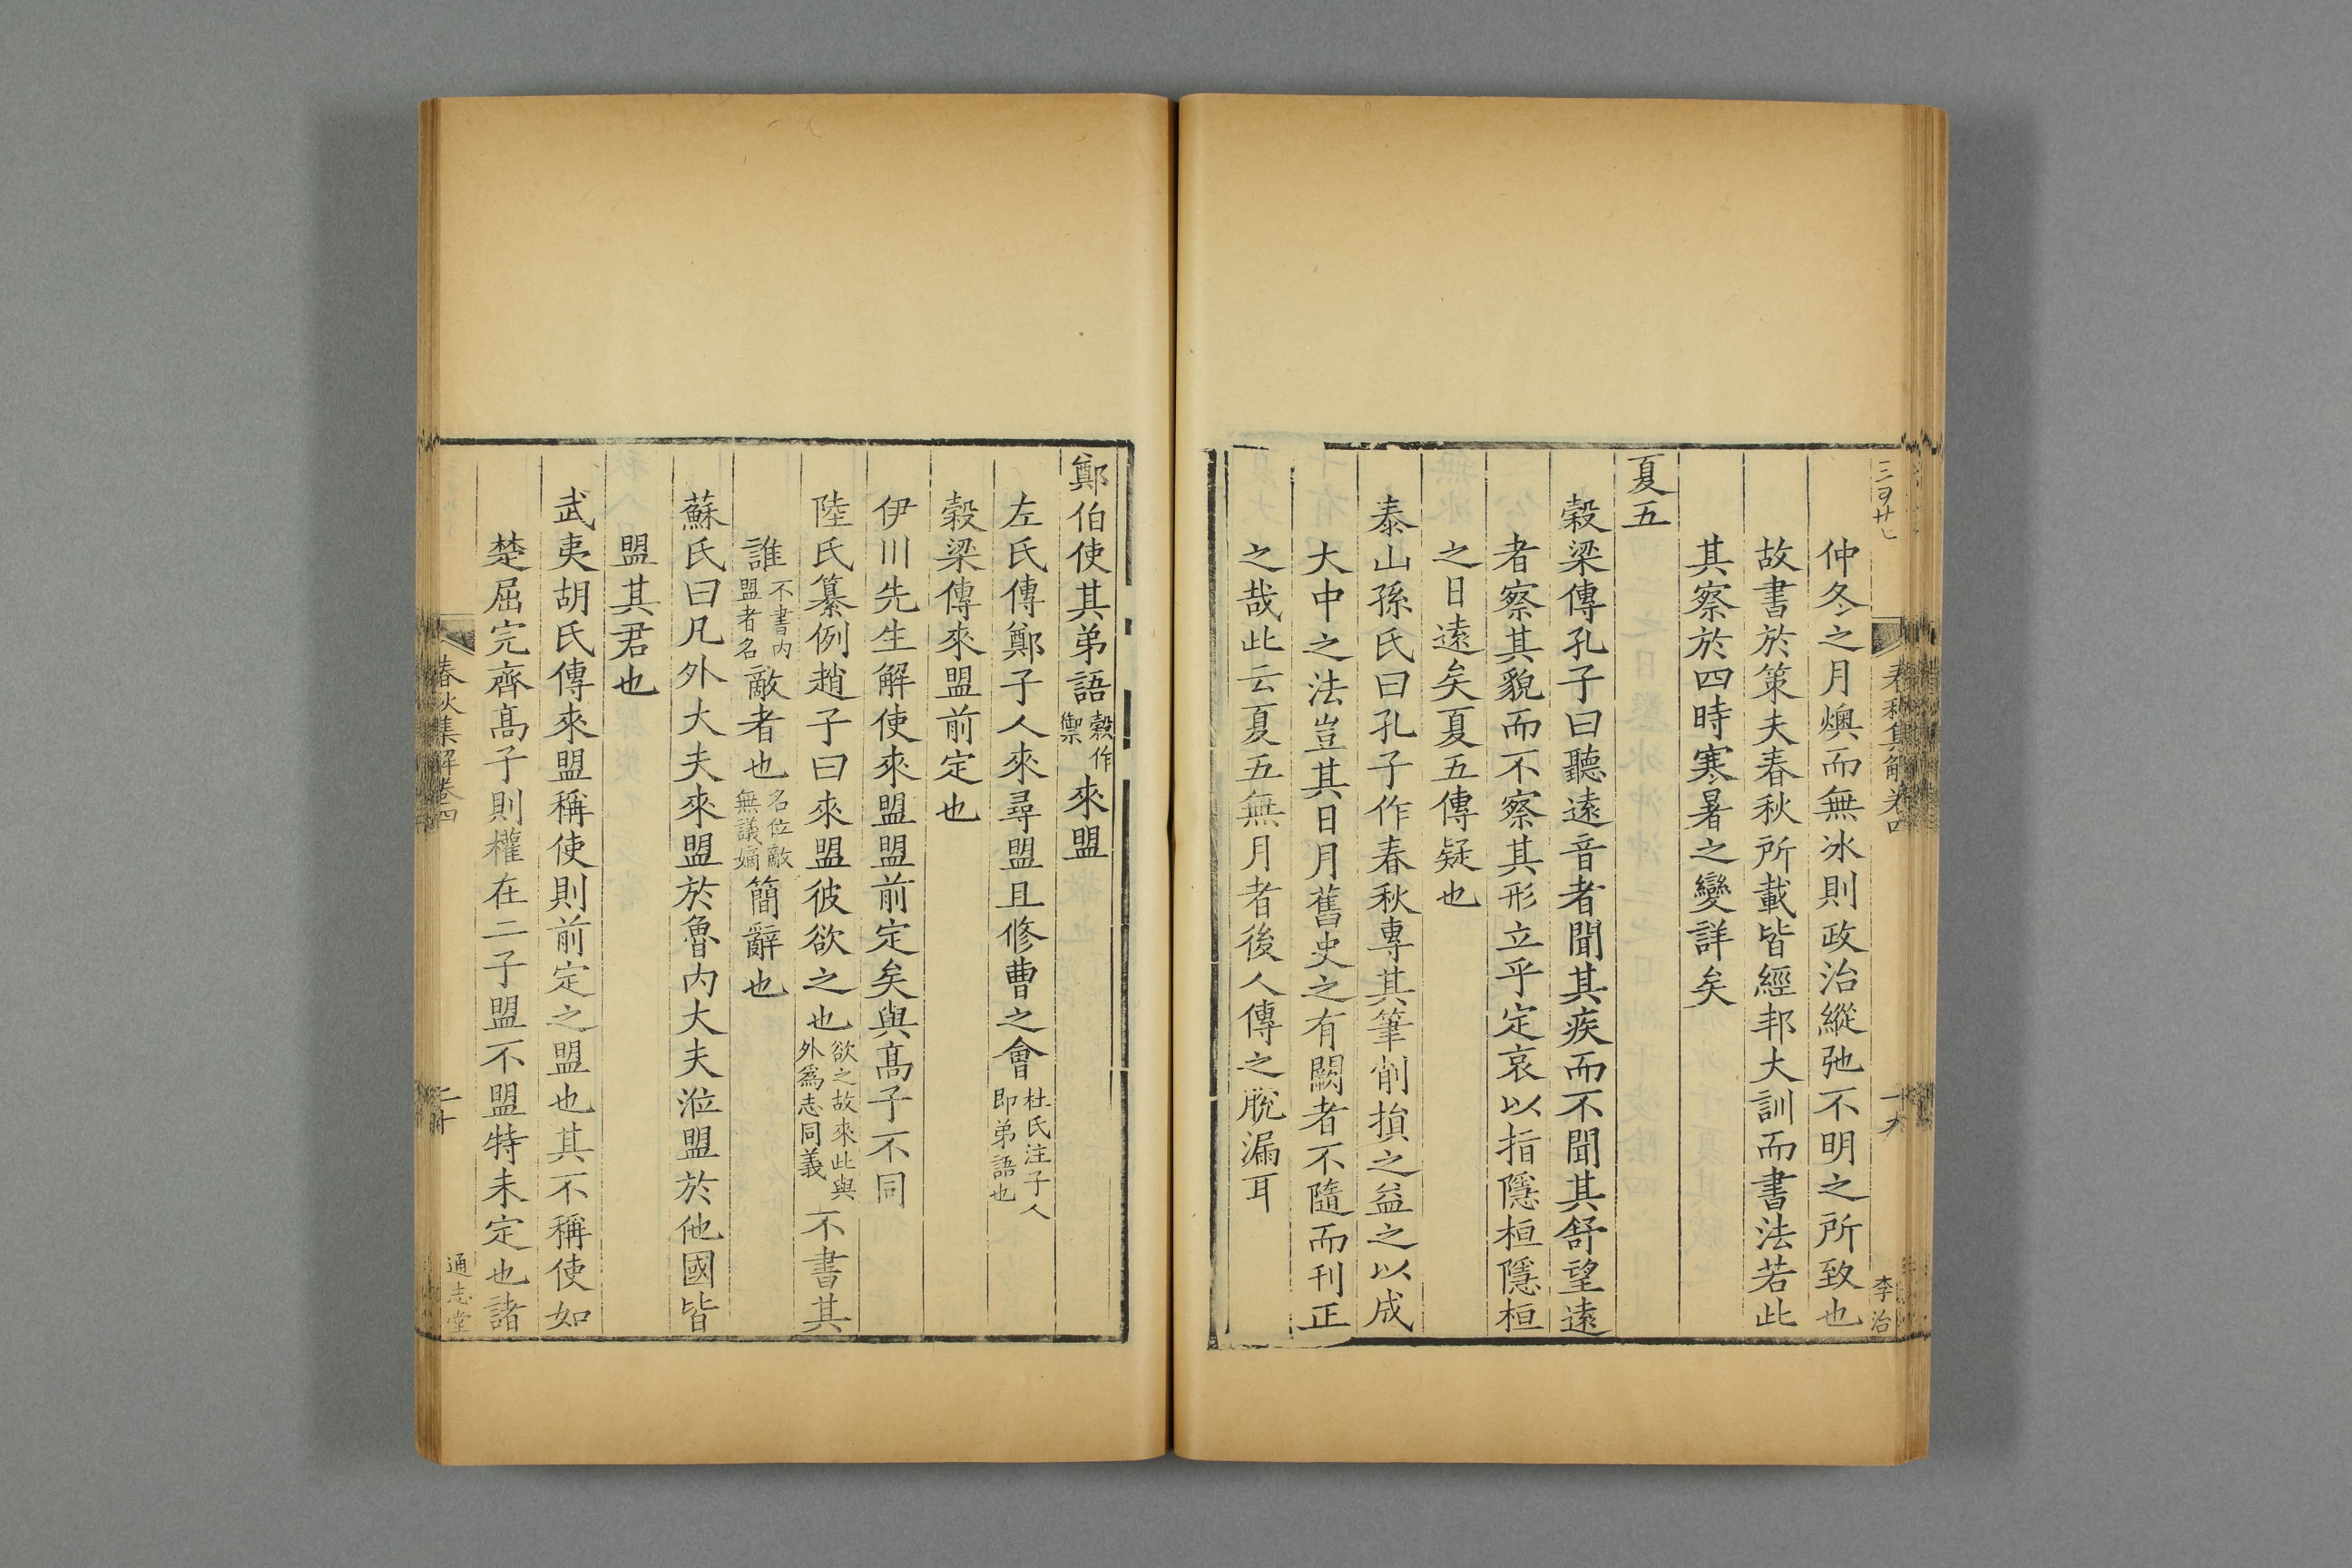 春秋集解卷四
十九
李治
仲冬之月燠而無冰則政治縱弛不明之所致也
故書於策夫春秋所載皆經邦大訓而書法若此
其察於四時寒暑之變詳矣
夏五
穀梁傳孔子曰聽遠音者聞其疾而不聞其舒望遠
者察其貌而不察其形立乎定哀以指隱桓隱桓
之日遠矣夏五傳疑也
泰山孫氏曰孔子作春秋專其筆削損之益之以成
大中之法豈其日月舊史之有闕者不隨而刊正
之哉此云夏五無月者後人傳之脫漏耳
鄭伯使其弟語穀作禦來盟
左氏傳鄭子人來尋盟且修曹之會杜氏注子人即弟語也
穀梁傳來盟前定也
伊川先生解使來盟盟前定矣與高子不同
陸氏纂例趙子曰來盟彼欲之也欲之故來此與外為志同義不書其
誰不書内盟者名敵者也名位敵無議嫡簡辭也
蘇氏曰凡外大夫來盟於魯内大夫涖盟於他國皆
盟其君也
武夷胡氏傳來盟稱使則前定之盟也其不稱使如
楚屈完齊高子則權在二子盟不盟特未定也諸
春秋集解卷四
二十
通志堂